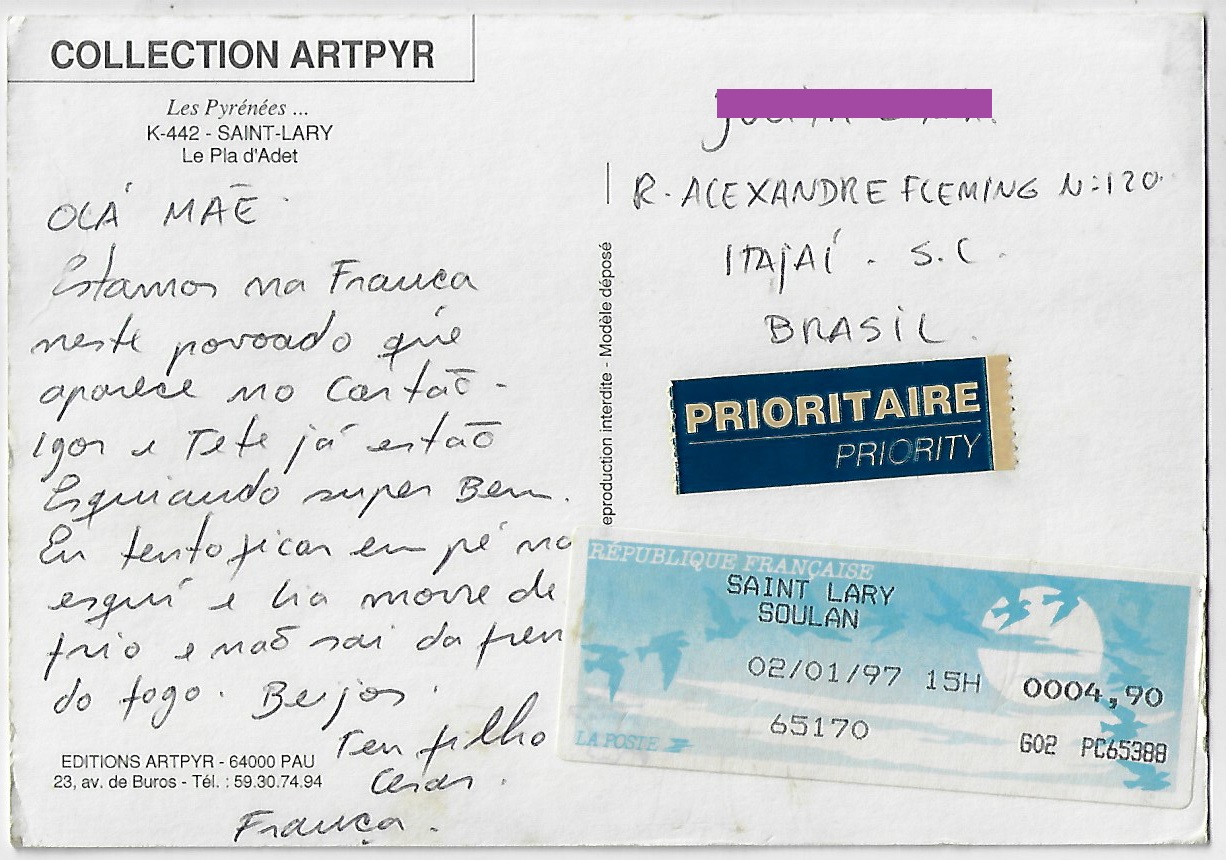 COLLECTION ARTPYR
Les Pyrénées ...
K-442 - SAINT-LARY
Le Pla d'Adet
OLÁ MÃE
Estamos na França
neste povoado que
aparece no Cartão -
Igor e Tete já estão
Esquiando super Bem.
Eu tento ficar em pé no
esquí e Lia morre de
frio e não sai da fren
do fogo. Beijos.
Teu filho
Cesar.
França.
EDITIONS ARTPYR - 64000 PAU
23, av. de Buros - Tél. : 59.30.74.94
eproduction interdite - Modèle déposé
R. ALEXANDRE FLEMING N:120
ITAJAÍ . S.C.
BRASIL.
PRIORITAIRE
PRIORITY
RÉPUBLIQUE FRANÇAISE
SAINT LARY
SOULAN
02/01/97 15H 0004,90
65170
LA POSTE G02 PC65388